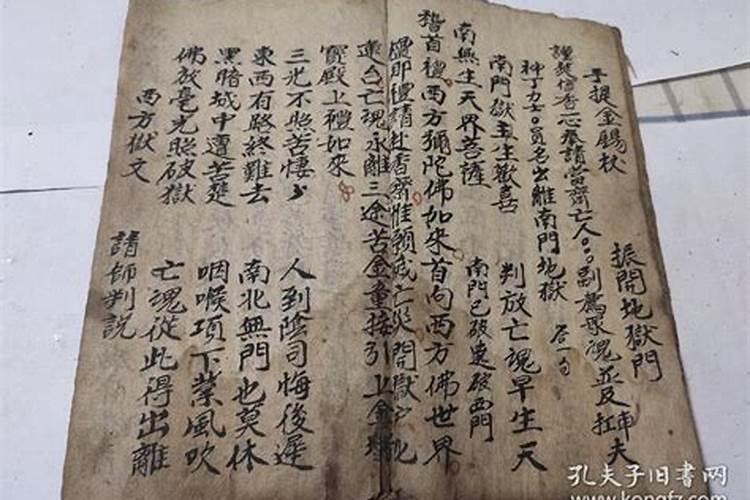 手提金錫杖 振開地獄門
謹焚信香一心奉請當齋亡人〇〇副薦眾魂並及扛車夫
种丁力士〇員名出離南門地獄
南門獄主生歡喜 判放亡魂早生天
南無生天界菩薩 南門已破連破西門
稽首禮西方彌陀佛如來首向西方佛世界
禮即禮請赴香齋惟願滅亡災開獄
亡魂永離三途苦金童接引上金
寶殿上禮如來
三光不照苦悽々 人到陰司悔後遲
東西有路終難去 南北無門也莫休
黑暗城中遭苦楚 咽喉項下業風吹
佛放毫光照破獄 亡魂從此得出離
西方獄文 請師判説
孔夫子旧書网
www.kongfz.com